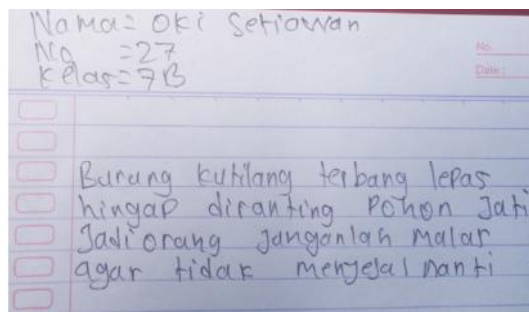 Nama= Oki Setiawan
No =27
Kelas=7B
No.
Date:
Burung kutilang terbang lepas
hingap diranting Pohon Jati
Jadi orang janganlah malas
agar tidak menyesal nanti